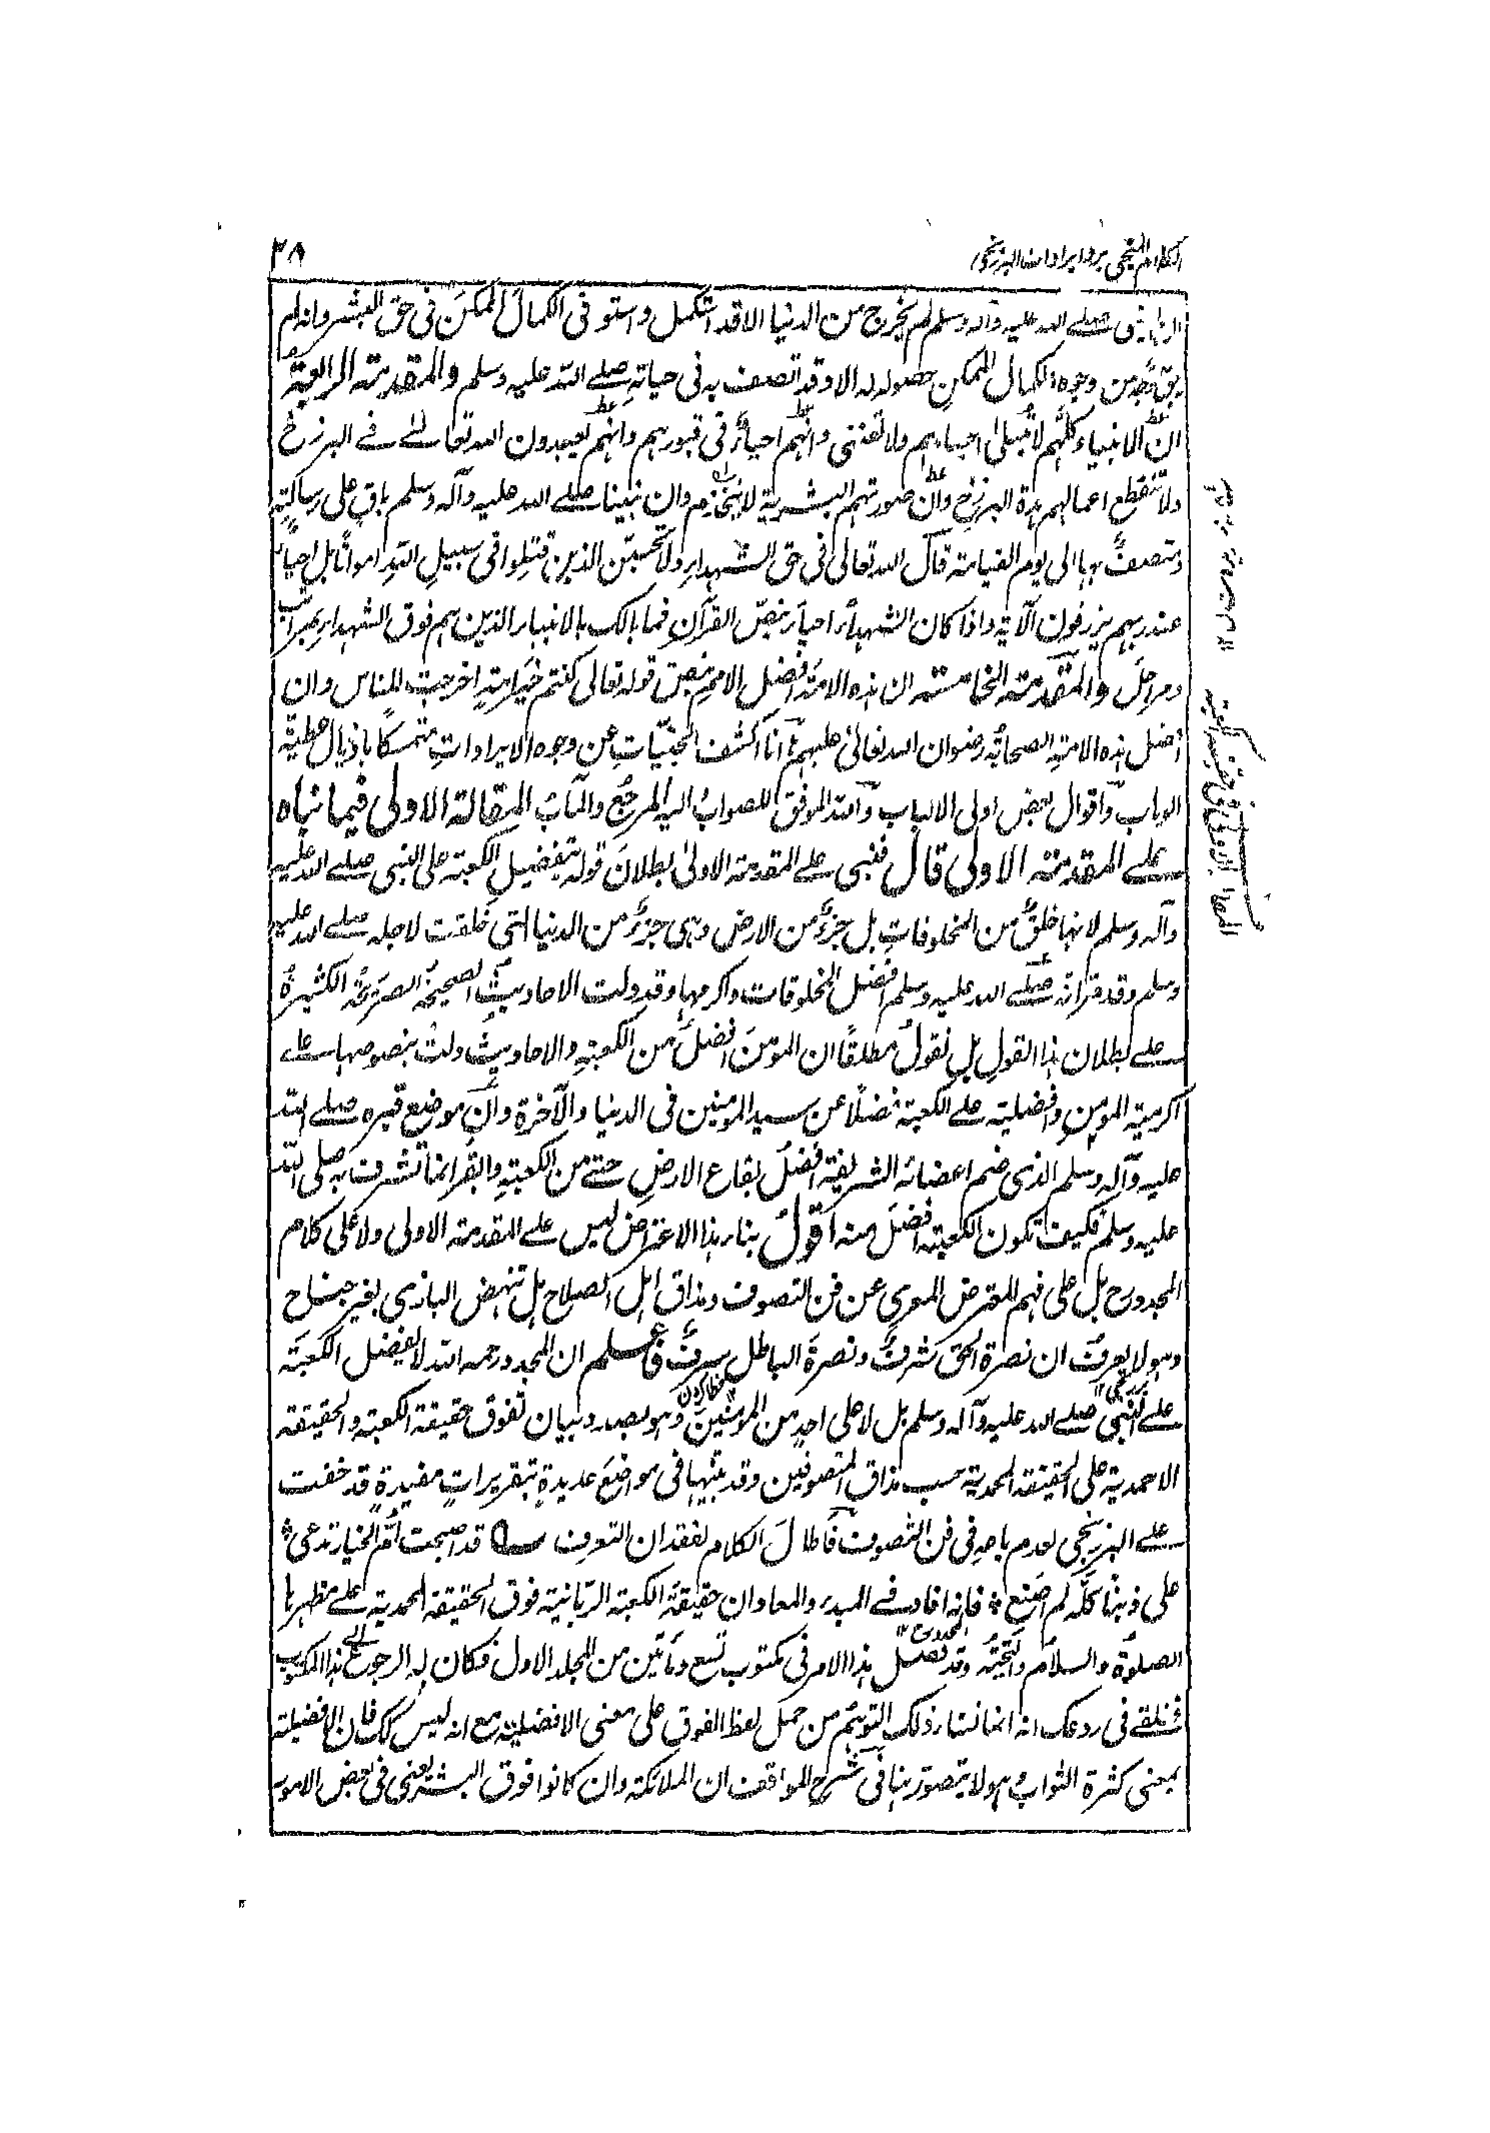 الكلام المنجي برد ايرادات البرزنجي
٣٨
صلى الله عليه وآله وسلم لم يخرج من الدنيا الا قد استكمل واستوفى الكمال الممكن فى حق البشر وانه لم
يبق وجه من وجوه الكمال الممكن حصوله له الا وقد اتصف به فى حياته صلى الله عليه وسلم والمقدمة الرابعة
ان الانبياء كلهم لا تبلى اجسادهم ولا تفنى وانهم احياء فى قبورهم وانهم يعبدون الله تعالى فى البرزخ
ولا تنقطع اعمالهم مدة البرزخ وان صورتهم البشرية لا تنخرم وان نبينا صلى الله عليه وآله وسلم باق على رسالته
ومتصف بها الى يوم القيامة قال الله تعالى فى حق الشهداء ولا تحسبن الذين قتلوا فى سبيل الله امواتا بل احياء
عند ربهم يرزقون الآية واذا كان الشهداء احياء بنص القرآن فما بالك بالانبياء الذين هم فوق الشهداء بمراتب
ومراحل والمقدمة الخامسة ان هذه الامة افضل الامم بنص قوله تعالى كنتم خير امة اخرجت للناس وان
افضل هذه الامة الصحابة رضوان الله تعالى عليهم انا اكشف المخبيات عن وجوه الايرادات متمسكا باذيال عطية
الوهاب واقوال بعض اولى الالباب والله الموفق للصواب واليه المرجع والمآب المقالة الاولى فيما بناه
على المقدمة الاولى قال فنبى على المقدمة الاولى بطلان قوله بتفضيل الكعبة على النبى صلى الله عليه
وآله وسلم لانها خلق من المخلوقات بل جزء من الارض وهى جزء من الدنيا التى خلقت لاجله صلى الله عليه
وسلم وقد قرر انه صلى الله عليه وسلم افضل المخلوقات واكرمها وقد دلت الاحاديث الصحيحة الصريحة الكثيرة
على بطلان هذا القول بل نقول مطلقا ان المومن افضل من الكعبة والاحاديث دلت بنصوصها على
اكرمية المومن وافضلية على الكعبة فضلا عن سيد المومنين فى الدنيا والآخرة وان موضع قبره صلى الله
عليه وآله وسلم الذى ضم اعضائه الشريفة افضل بقاع الارض حتى من الكعبة والقبر انما تشرف به صلى الله
عليه وسلم فكيف تكون الكعبة افضل منه اقول بناء هذا الاعتراض ليس على المقدمة الاولى ولا على كلام
المجدد رح بل على فهم المعترض المعرى عن فن التصوف ومذاق اهل الصلاح هل تنهض البازى بغير جناح
وهو لا يعرف ان نصرة الحق شرف ونصرة الباطل سرف فاعلم ان المجدد رحمه الله لا يفضل الكعبة
على النبى صلى الله عليه وآله وسلم بل لا على احد من المومنين وهو بصدد بيان تفوق حقيقة الكعبة والحقيقة
الاحمدية على الحقيقة المحمدية حسب مذاق المتصوفين وقد بينها فى مواضع عديدة بتقريرات مفيدة قد خفت
على البرزنجى لعدم باعه فى فن التصوف فاطال الكلام لفقدان التعرف قد اصبحت ام الخيار تدعى
على ذنبا كله لم اصنع فانه افاد فى المبدء والمعاد ان حقيقة الكعبة الربانية فوق الحقيقة المحمدية على مظهرها
الصلوة والسلام والتحية وقد فصل المجدد رح هذا الامر فى مكتوب تسع ومأتين من المجلد الاول فكان له الرجوع الى هذا المكتوب
فنلقى فى روعك انه انما نشأ ذلك التوهم من حمل لفظ الفوق على معنى الافضلية مع انه ليس كك فان الافضلية
بمعنى كثرة الثواب وهو لا يتصور هنا فى شرح المواقف ان الملائكة وان كانوا فوق البشر يعنى فى بعض الامور